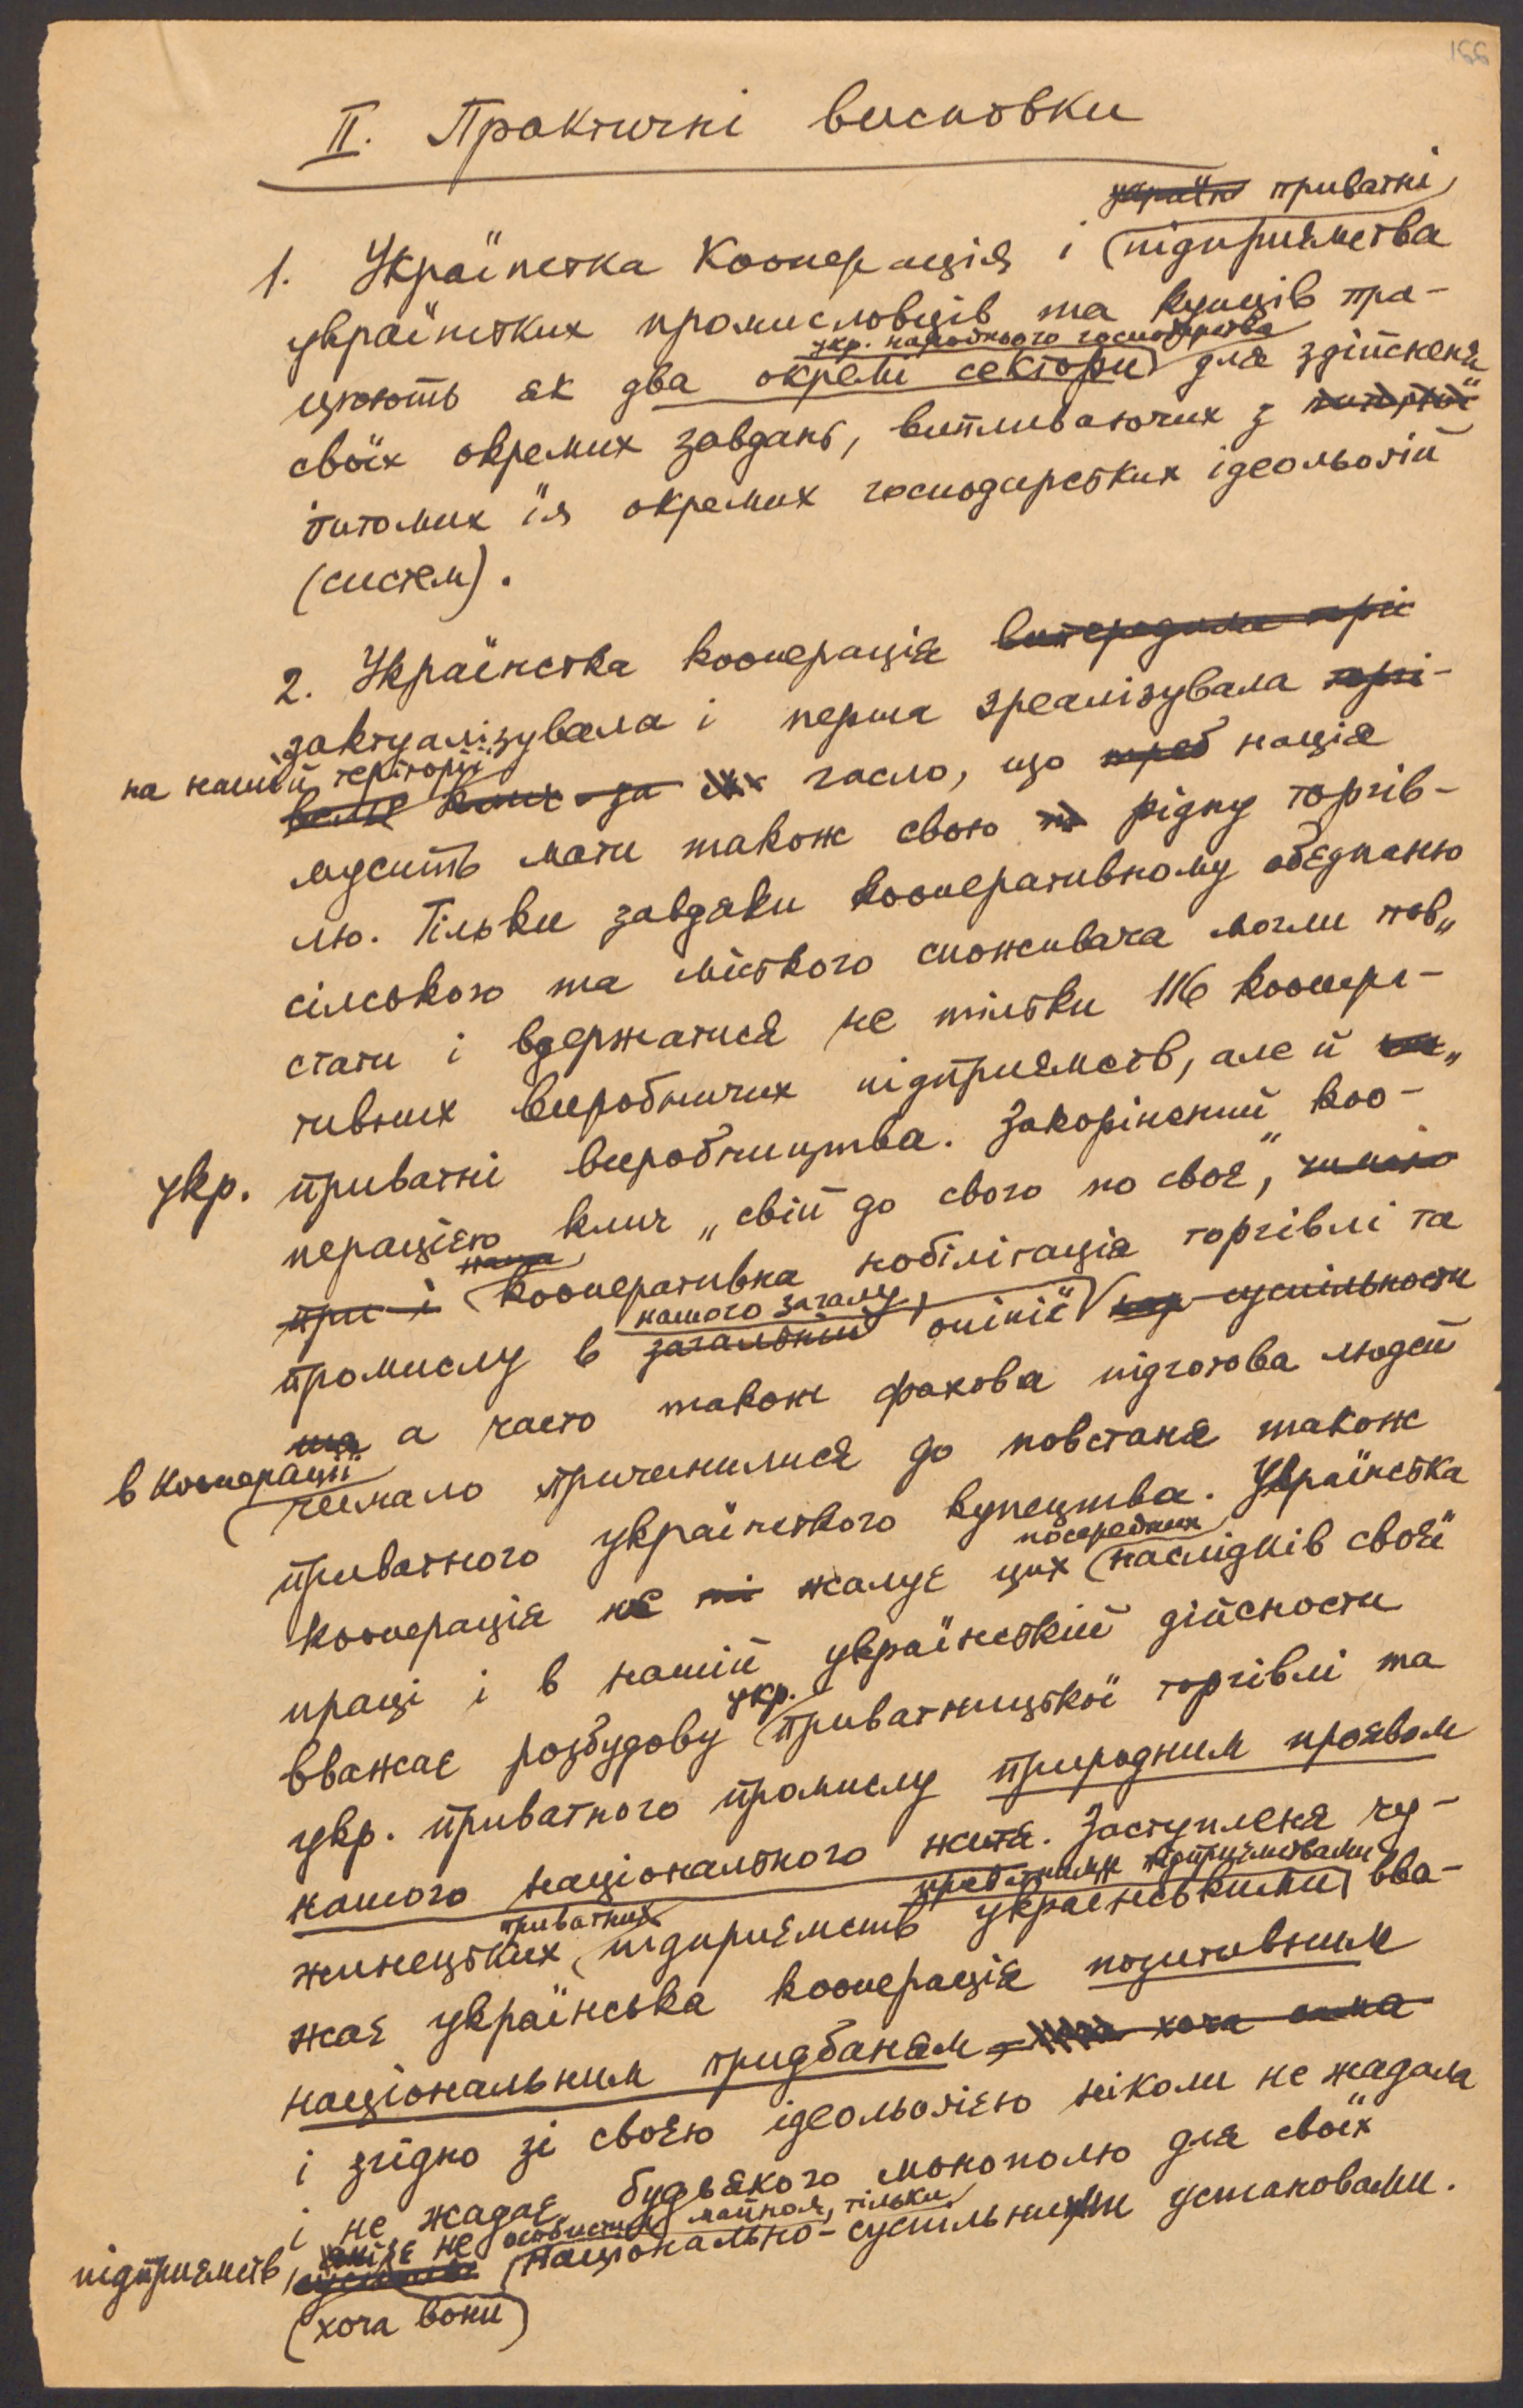 155
II. Практичні висновки
приватні
1. Українська Кооперація і підприємства
українських промисловців та купців пра-
укр. народнього господарства
цюють як два окремі сектори для здійсненя
своїх окремих завдань, випливаючих з
питомих їм окремих господарських ідеольогій
(систем).
2. Українська кооперація
зактуалізувала і перша зреалізувала
на нашій теріторії
гасло, що нація
мусить мати також свою рідну торгів-
лю. Тільки завдяки кооперативному обєднаню
сільського та міського споживача могли пов„
стати і вдержатися не тільки 116 коопера-
тивних виробничих підприємств, але й
укр. приватні виробництва. Закорінений коо-
перацією клич „свій до свого по своє",
кооперативна нобілітація торгівлі та
нашого загалу,
промислу в опінії
а часто також фахова підготова людей
в кооперації
чимало причинилися до повстаня також
приватного українського купецтва. Українська
посередних
кооперація не жалує цих наслідків своєї
праці і в нашій українській дійсности
укр.
вважає розбудову приватницької торгівлі та
укр. приватного промислу природним проявом
нашого національного житя. Заступленя чу-
приватними підприємствами
приватних
жинецьких підприємств українськими вва-
жає українська кооперація позитивним
національним придбаням
і згідно зі своєю ідеольогією ніколи не жадала
і не жадає будьякого монополю для своїх
не особистим майном, тільки
підприємств, національно-суспільними установами.
(хоча вони)